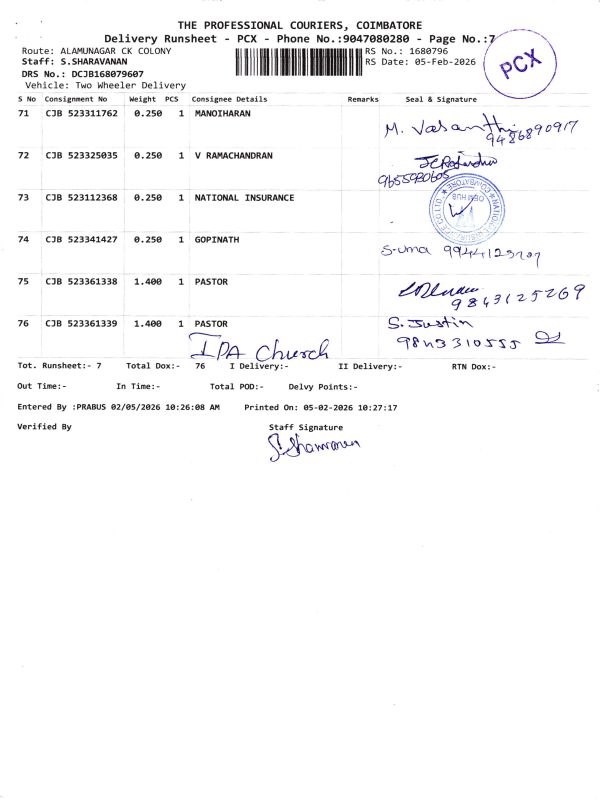 THE PROFESSIONAL COURIERS, COIMBATORE
Delivery Runsheet - PCX - Phone No.:9047080280 - Page No.:7
Route: ALAMUNAGAR CK COLONY
RS No.: 1680796
Staff: S.SHARAVANAN
RS Date: 05-Feb-2026
DRS No.: DCJB168079607
Vehicle: Two Wheeler Delivery
PCX
S No Consignment No Weight PCS Consignee Details Remarks Seal & Signature
71 CJB 523311762 0.250 1 MANOIHARAN
M. Vasanthi
9486890917
72 CJB 523325035 0.250 1 V RAMACHANDRAN
9655920605
73 CJB 523112368 0.250 1 NATIONAL INSURANCE
74 CJB 523341427 0.250 1 GOPINATH
S-uma
75 CJB 523361338 1.400 1 PASTOR
9843125269
76 CJB 523361339 1.400 1 PASTOR
S. Justin
9843310555
IPA Church
Tot. Runsheet:- 7 Total Dox:- 76 I Delivery:- II Delivery:- RTN Dox:-
Out Time:- In Time:- Total POD:- Delvy Points:-
Entered By :PRABUS 02/05/2026 10:26:08 AM Printed On: 05-02-2026 10:27:17
Verified By Staff Signature